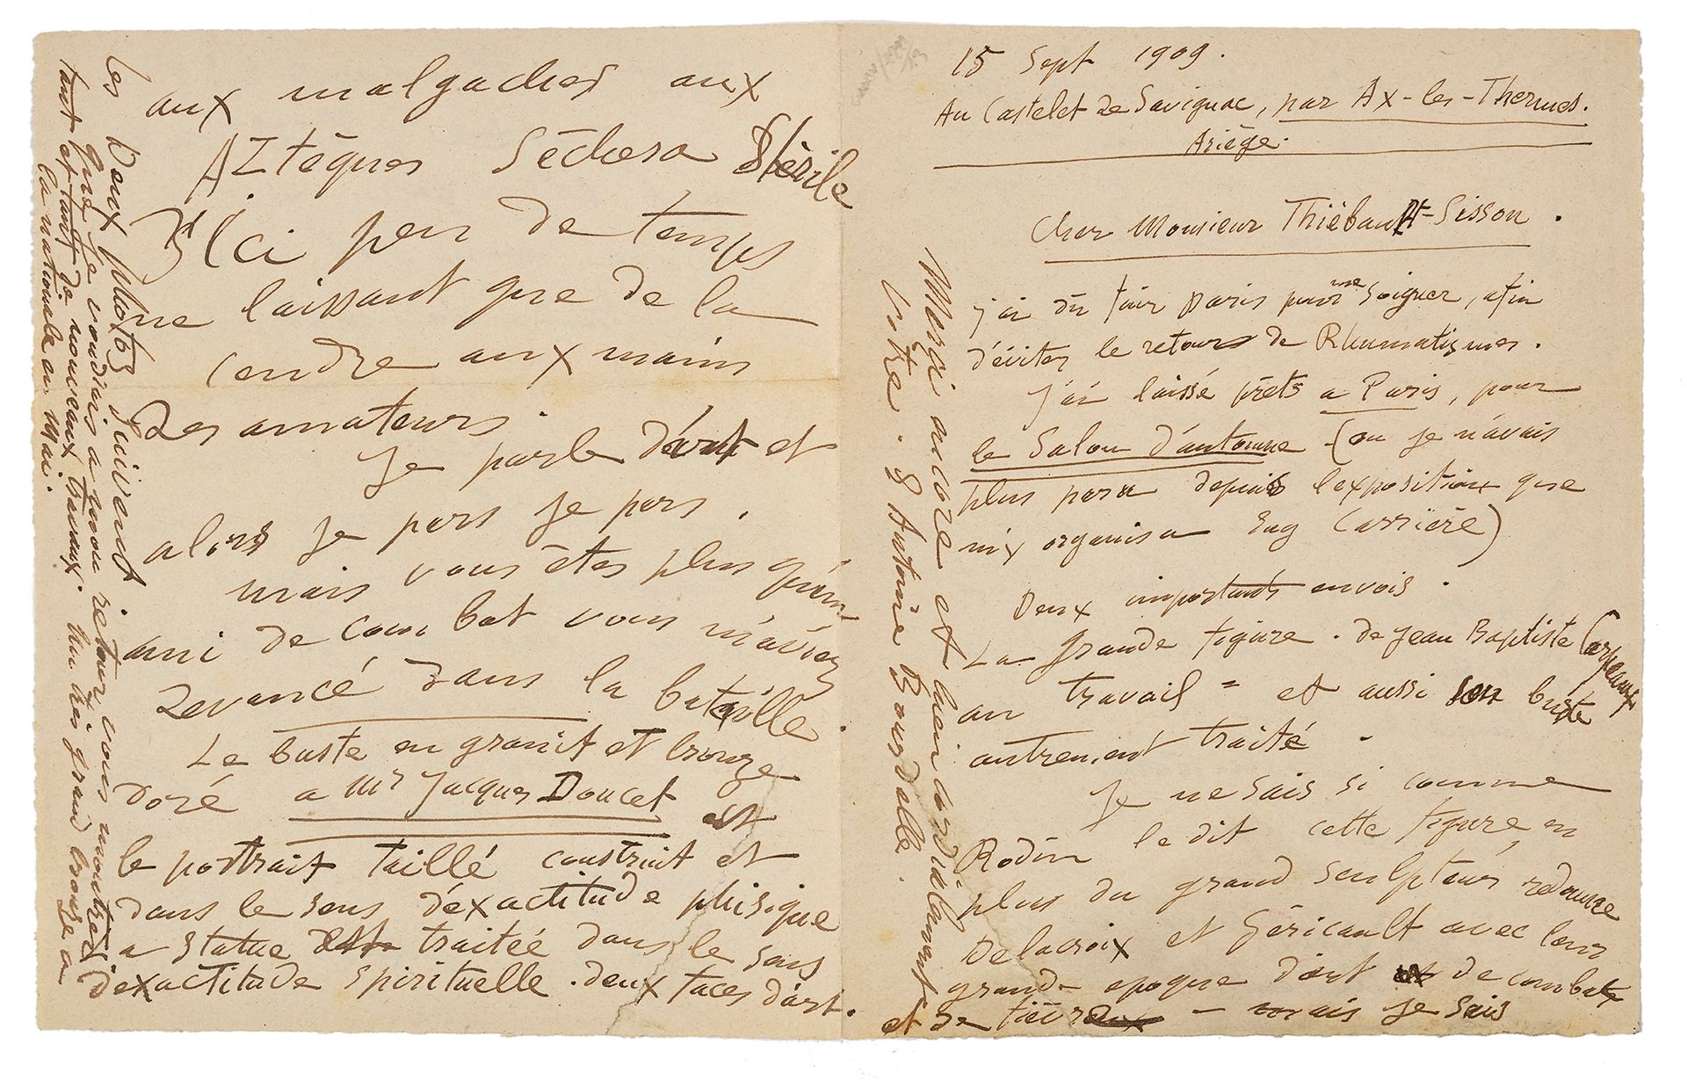 15 Sept 1909.
Au Castelet de Savignac, par Ax-les-Thermes.
Ariège.
Cher Monsieur Thiébault-Sisson.
j'ai dû fuir Paris pour me soigner, afin
d'éviter le retour de Rhumatismes.
J'ai laissé prêts a Paris, pour
le Salon d'automne (ou je n'avais
plus paru depuis l'exposition que
m'y organisa Eug Carrière)
Deux importants envois.
La grande figure. de Jean Baptiste Carpeaux
au travail = et aussi son buste
autrement traité.
Je ne sais si comme
Rodin le dit cette figure, en
plus du grand sculpteur redonne
Delacroix et Géricault avec leur
grande epoque d'art de combats
et de fièvre — mais je sais
aux malgaches aux
Aztèques Sèchera Stérile
D'ici peu de temps
ne laissant que de la
cendre aux mains
des amateurs.
Je parle d'art et
alors je pars je pars.
mais vous êtes plus qu'un
ami de combat vous m'avez
devancé dans la bataille.
Le buste en granit et bronze
doré a Mr Jacques Doucet est
le portrait taillé construit et
dans le sens d'exactitude phisique
a statue traitée dans le sens
d'exactitude spirituelle. deux faces d'art.
Les Deux photos suivent
que je voudrais a mon retour vous montrer
tant et tant de nouveaux travaux. un très grand bronze a
la nationale en Mai.
Merci encore et bien cordialement
votre. E Antoine Bourdelle.